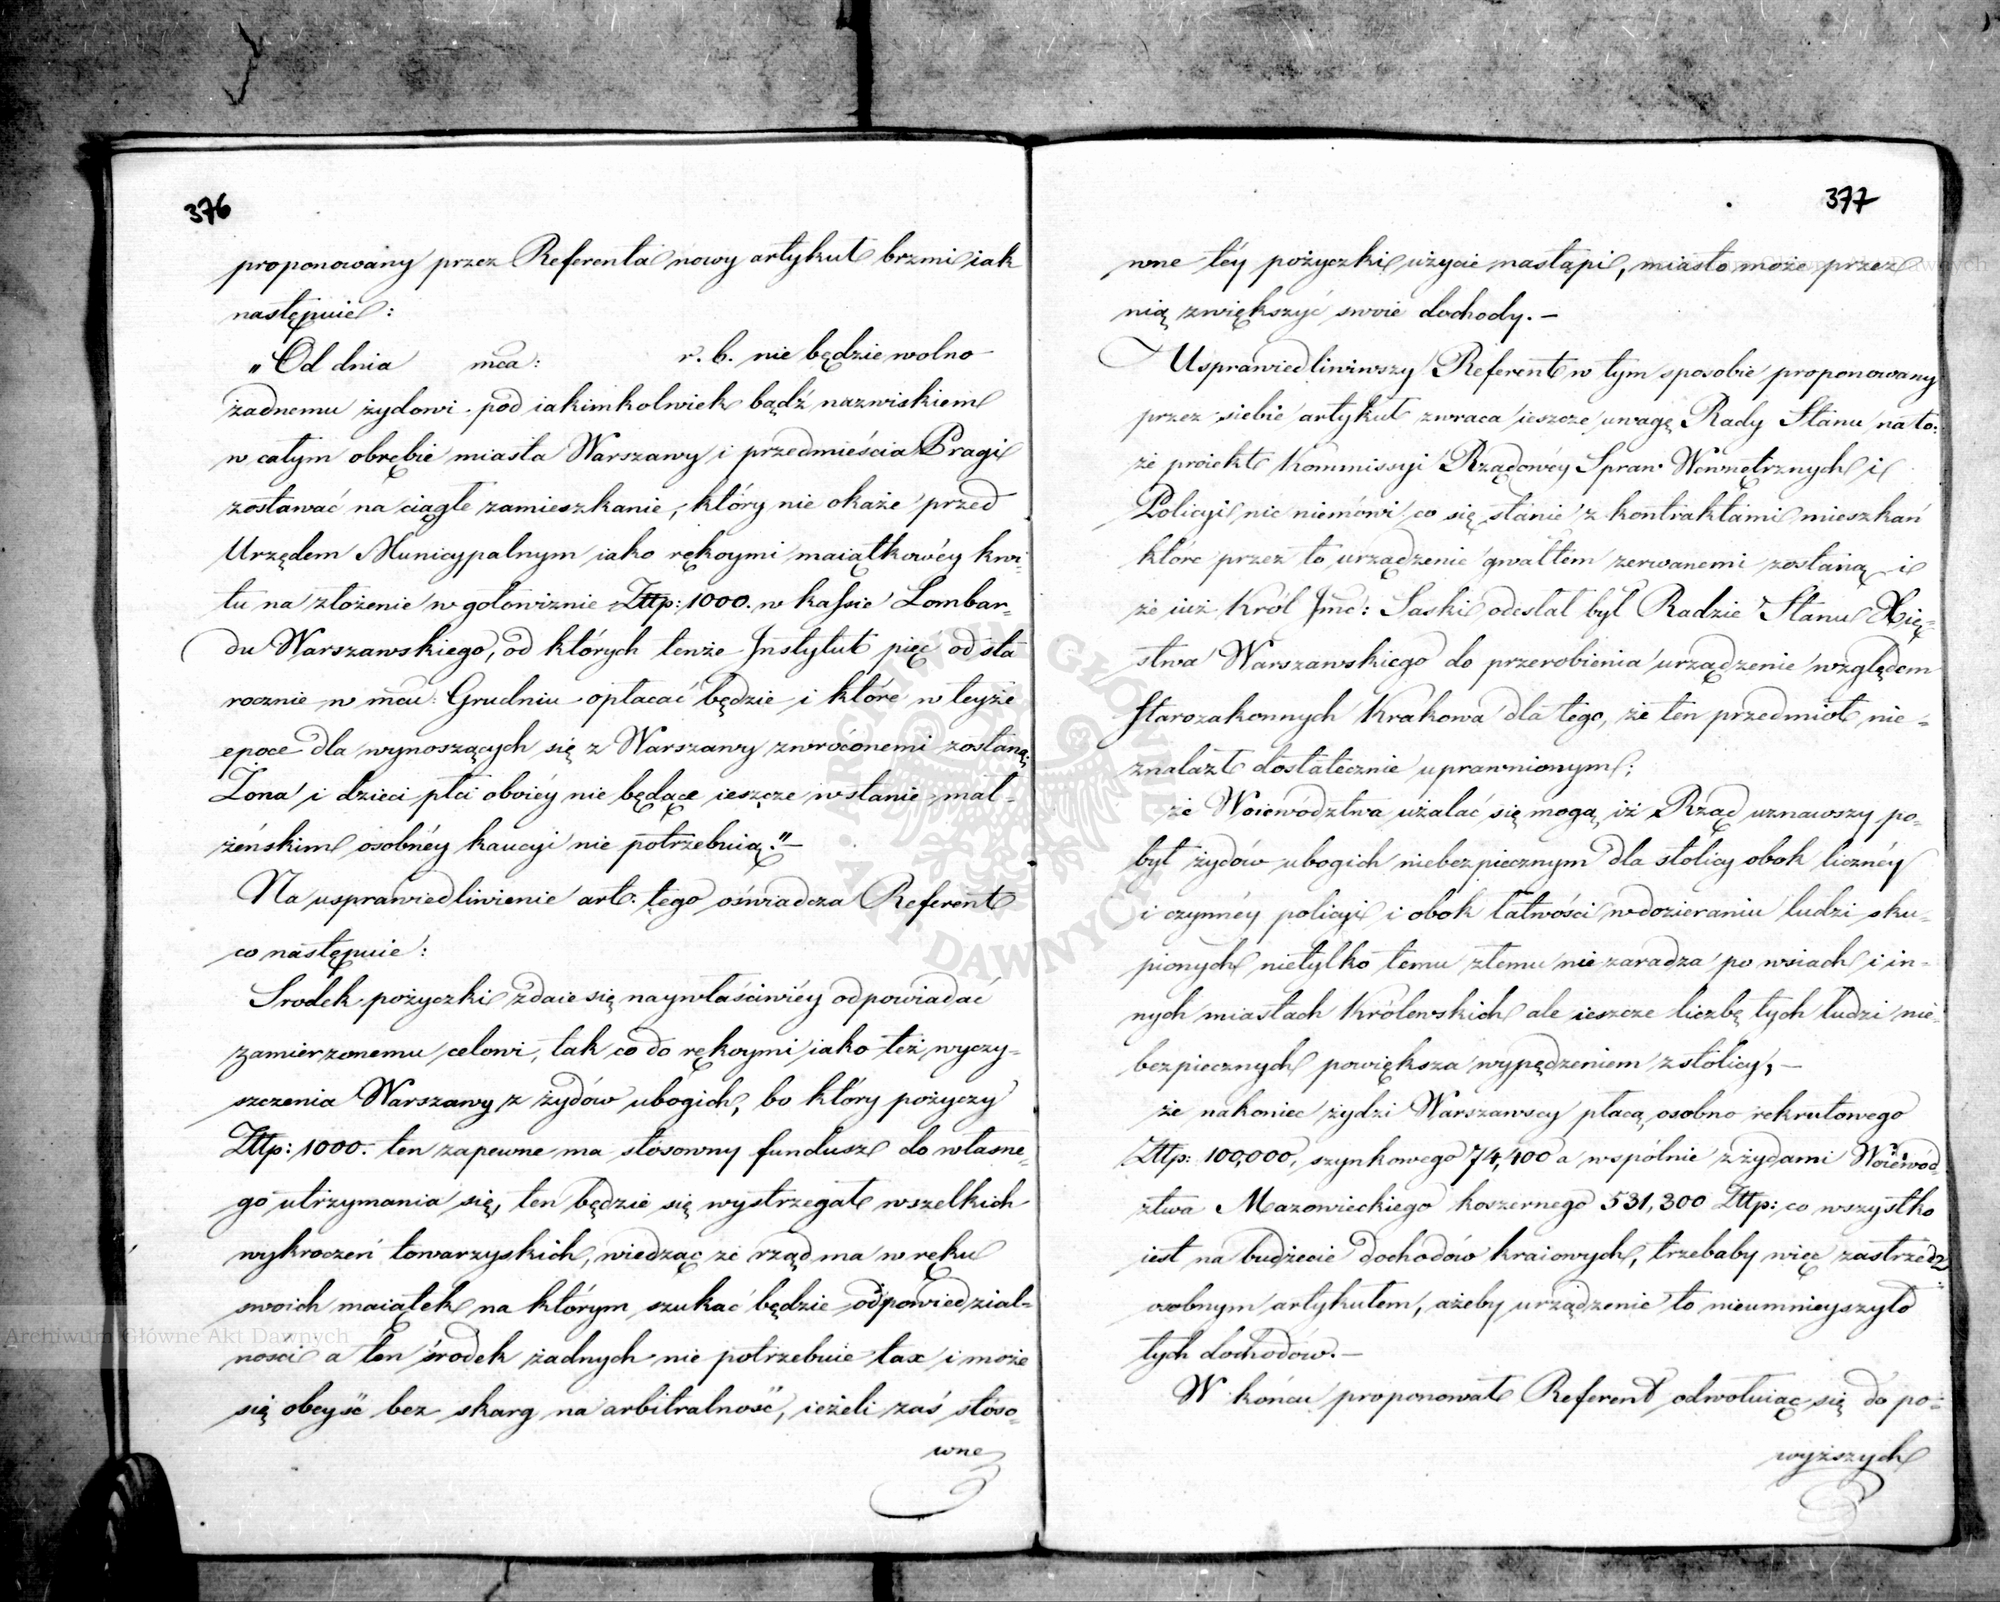 376
proponowany przez Referenta nowy artykuł brzmi iak
następuie:
„Od dnia mca: r. b. nie będzie wolno
żadnemu żydowi pod iakimkolwiek bądź nazwiskiem
w całym obrębie miasta Warszawy i przedmieścia Pragi
zostawać na ciągłe zamieszkanie, który nie okaże przed
Urzędem Municypalnym iako rękoymi maiątkowéy kwi-
tu na złożenie w gotowiznie Złtp: 1000. w kassie Lombar-
du Warszawskiego, od których tenże Instytut pięć od sta
rocznie w mcu: Grudniu opłacać będzie i które w teyże
epoce dla wynoszących się z Warszawy zwróconemi zostaną;
Żona i dzieci płci oboiéy nie będące ieszcze w stanie mał-
żeńskim osobnéy kaucyi nie potrzebuią."—
Na usprawiedliwienie art: tego oświadcza Referent
co następuie:
Srodek pożyczki zdaie się naywłaściwiéy odpowiadać
zamierzonemu celowi, tak co do rękoymi iako też wyczy-
szczenia Warszawy z żydów ubogich, bo który pożyczy
Złtp: 1000. ten zapewne ma stósowny fundusz do własne-
go utrzymania się, ten będzie się wystrzegał wszelkich
wykroczeń towarzyskich, wiedząc że rząd ma w ręku
swoich maiątek na którym szukać będzie odpowiedzial-
ności a ten środek żadnych nie potrzebuie tax i może
się obeyść bez skarg na arbitralność, ieżeli zaś stóso-
wne
377
wne téy pożyczki użycie nastąpi, miasto może przez
nią zwiększyć swoie dochody.—
Usprawiedliwiwszy Referent w tym sposobie proponowany
przez siebie artykuł zwraca ieszcze uwagę Rady Stanu na to:
że proiekt Kommissyi Rządowéy Spraw Wewnętrznych i
Policyi nic niemówi co się stanie z kontraktami mieszkań
które przez to urządzenie gwałtem zerwanemi zostaną i
że iuż Król Jmć: Saski odesłał był Radzie Stanu Xię-
stwa Warszawskiego do przerobienia urządzenie względem
Starozakonnych Krakowa dla tego, że ten przedmiot nie-
znalazł dostatecznie uprawnionym;
że Woiewództwa użalać się mogą iż Rząd uznawszy po-
byt żydów ubogich niebezpiecznym dla stolicy obok licznéy
i czynnéy policyi i obok łatwości w dozieraniu ludzi sku-
pionych nietylko temu złemu nie zaradza po wsiach i in-
nych miastach Królewskich ale ieszcze liczbę tych ludzi nie-
bezpiecznych powiększa wypędzeniem z stolicy,—
że nakoniec żydzi Warszawscy płacą osobno rekrutowego
Złtp: 100,000, szynkowego 74,400 a wspólnie z żydami Woiewód-
ztwa Mazowieckiego koszernego 531,300 Złtp: co wszystko
iest na budżecie dochodów kraiowych, trzebaby więc zastrzedz
osobnym artykułem, ażeby urządzenie to nieumnieyszyło
tych dochodów.—
W końcu proponował Referent odwołuiąc się do po-
wyższych
Archiwum Główne Akt Dawnych